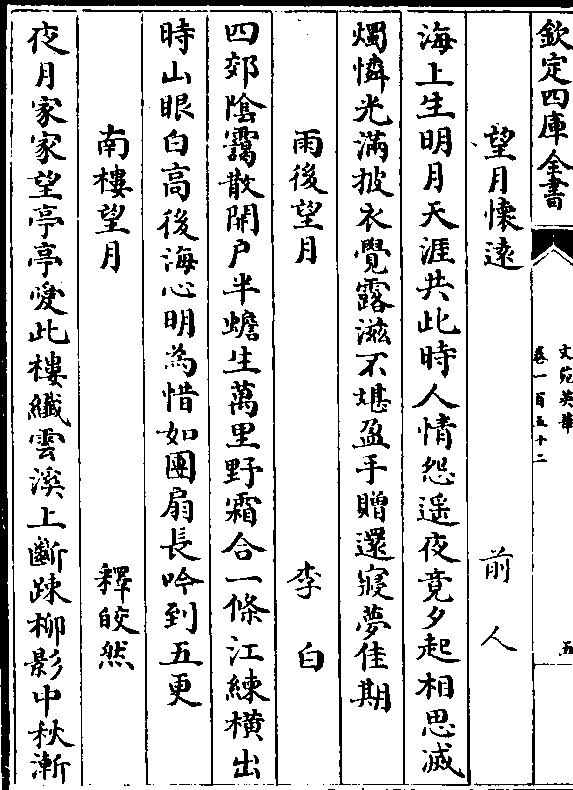 欽定四庫全書
文苑英華
卷一百五十二
五
望月懷遠 前人
海上生明月天涯共此時人情怨遥夜竟夕起相思滅
燭憐光滿披衣覺露滋不堪盈手贈還寢夢佳期
雨後望月 李白
四郊陰靄散開户半蟾生萬里野霜合一條江練横出
時山眼白高後海心明為惜如團扇長吟到五更
南樓望月 釋皎然
夜月家家望亭亭愛此樓纖雲溪上斷踈柳影中秋漸